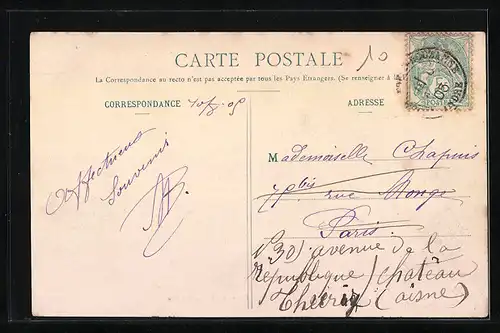 10
CARTE POSTALE
La Correspondance au recto n'est pas acceptée par tous les Pays Etrangers. (Se renseigner à la
CORRESPONDANCE
ADRESSE
Affectueux
Souvenir
Mademoiselle Chapuis
bis
rue Monge
Paris
30) avenue de la
République / Chateau
Thierry (aisne)
POSTES